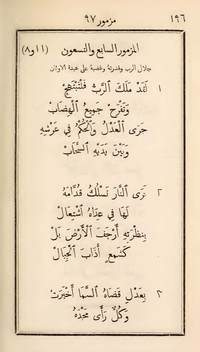 ١٩٦ مزمور ٩٧
المزمور السابع والتسعون (١١ و ٨)
جلال الرب وقدرته وغضبه على عبدة الاوثان
١ لَقَدْ مَلَكَ ٱلرَّبُّ فَلْتَبْتَهِجْ
وَتَفْرَحْ جَمِيعُ ٱلْهِضَابْ
جَرَى ٱلْعَدْلُ وَٱلْحُكْمُ فِي عَرْشِهِ
وَبَيْنَ يَدَيْهِ ٱلسَّحَابْ
٢ نَرَى ٱلنَّارَ تَسْلُكُ قُدَّامَهُ
لَهَا فِي عِدَاهُ ٱشْتِعَالْ
بِنَظْرَتِهِ أَرْجَفَ ٱلْأَرْضَ بَلْ
كَشَمْعٍ أَذَابَ ٱلْجِبَالْ
٣ بِعَدْلِ قَضَاهُ ٱلسَّمَا أَخْبَرَتْ
وَكُلٌّ رَأَى مَجْدَهُ